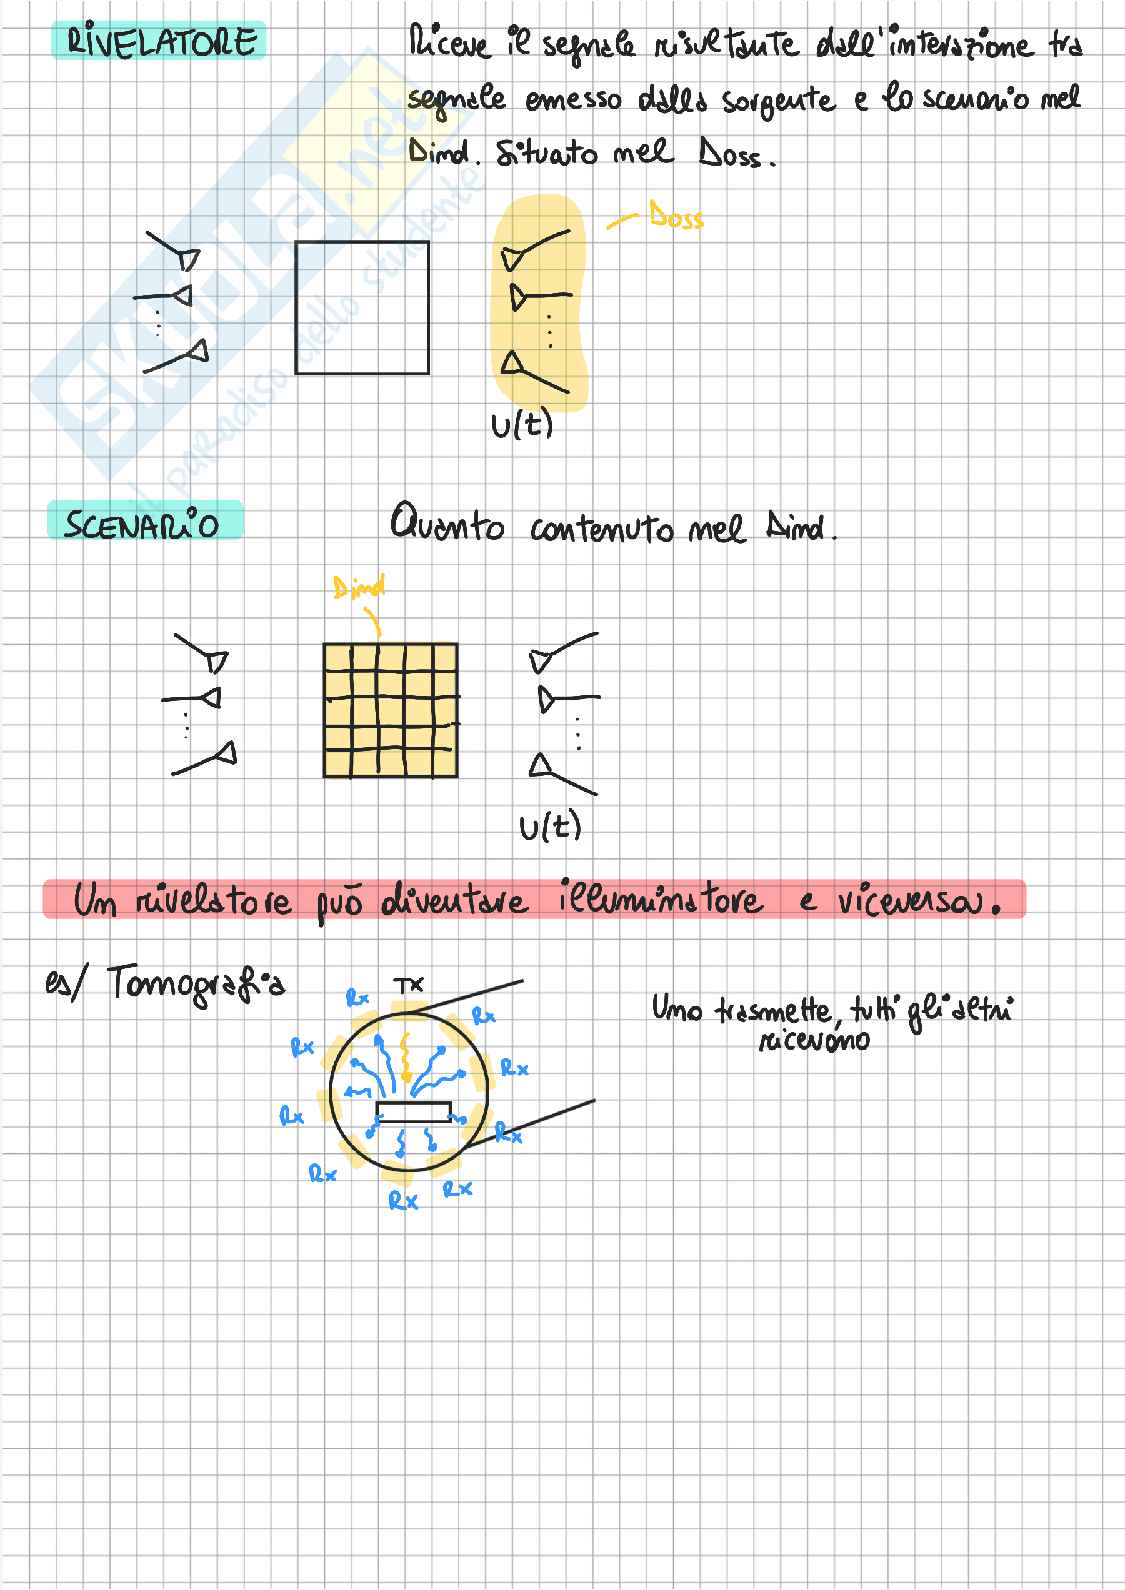 RIVELATORE
Riceve il segnale risultante dall'interazione tra
segnale emesso dalla sorgente e lo scenario nel
Dind. Situato nel Doss.
Doss
U(t)
SKUOLA.net
il paradiso dello studente
SCENARIO
Quanto contenuto nel Dind.
Dind
U(t)
Un rivelatore può diventare illuminatore e viceversa.
es/ Tomografia
TX
Rx
Rx
Rx
Rx
Rx
Rx
Rx
Rx
Rx
Uno trasmette, tutti gli altri
ricevono